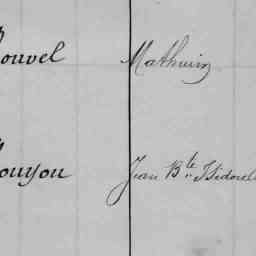 ouvel Mathurin
ouyou Jean Bte Isidore